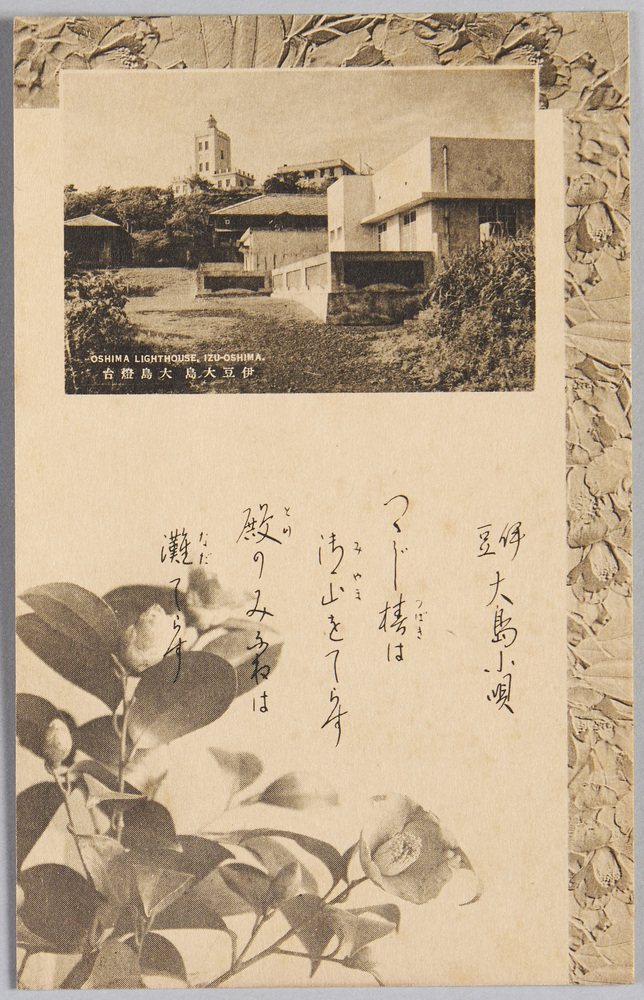 OSHIMA LIGHTHOUSE, IZU-OSHIMA.
伊豆大島 大島燈台
伊豆 大島小唄
つゝじ椿は
つばき
御山をてらす
みやま
殿のみふねは
との
灘てらす
なだ